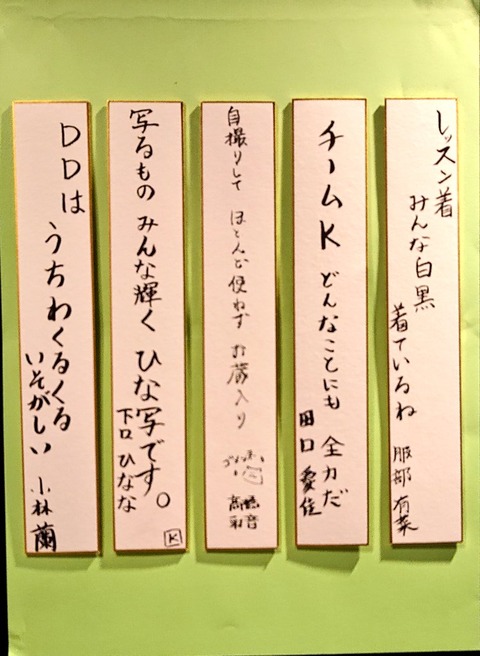 レッスン着
みんな白黒
着ているね
服部 有菜
チームK どんなことにも 全力だ
田口 愛佳
自撮りして ほとんど使わず お蔵入り
写るもの みんな輝く ひな写です。
下口 ひなな
K
DDは
うちわくるくる
いそがしい
小林 蘭